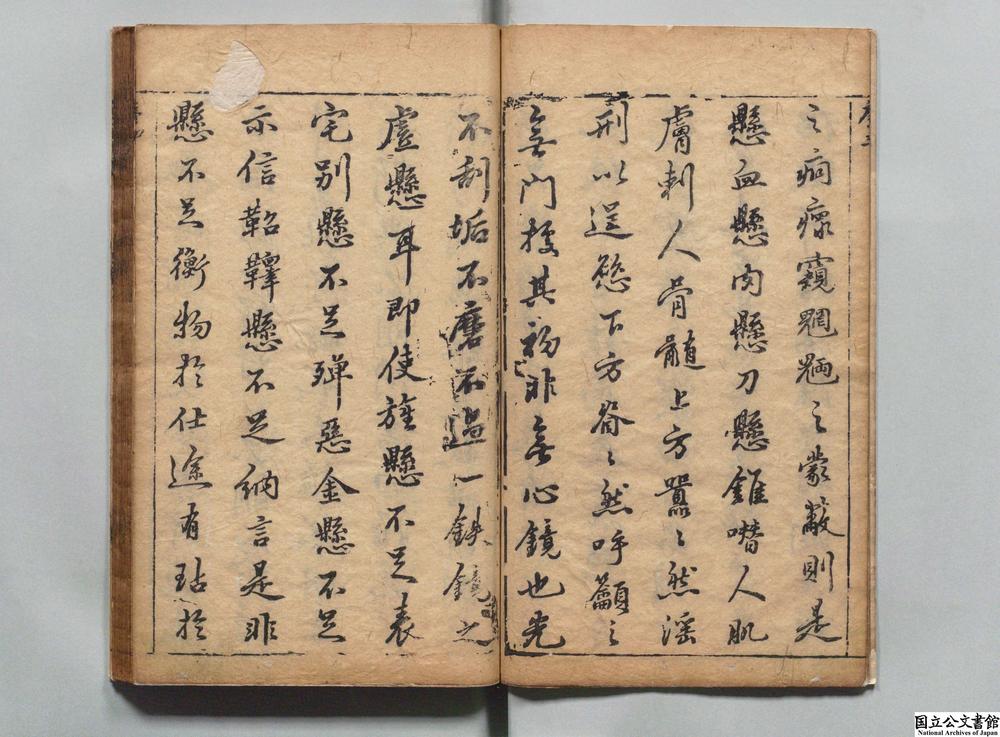 之痌瘝窺魍魎之蒙蔽則是
懸血懸肉懸刀懸錐噆人肌
膚刺人骨髓上方囂〻然淫
刑以逞慾下方脊〻然呼籲之
無門按其初非無心鏡也光
不刮垢不磨不過一鉄鏡之
虛懸耳即使旌懸不足表
宅別懸不足殫惡金懸不足
示信鞀鐸懸不足納言是非
懸不足衡物於仕途有玷於
国立公文書館
National Archives of Japan